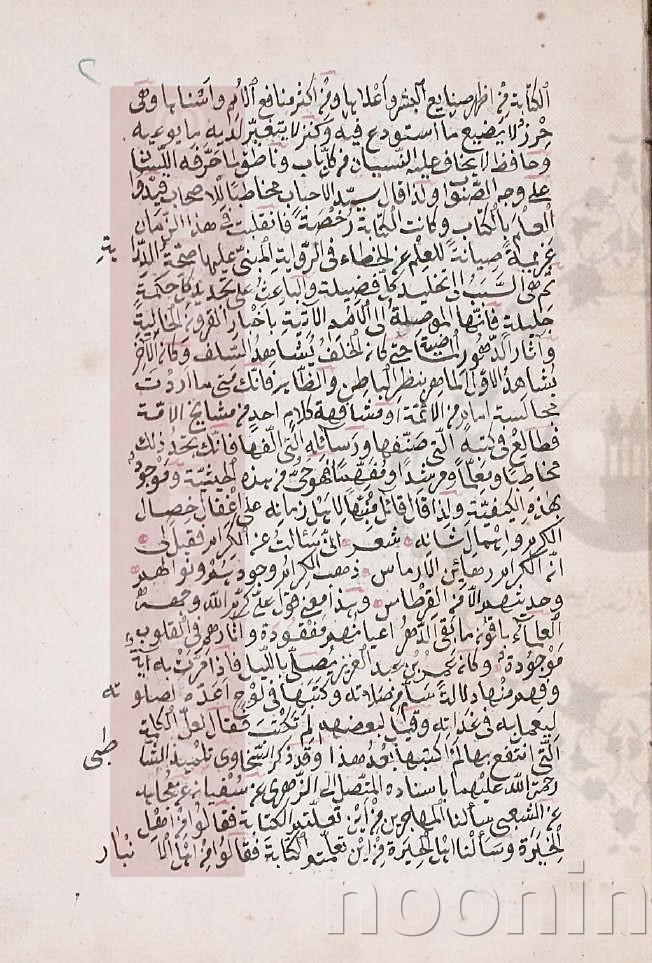 الكتابة من اظهر صنايع البشر واعلاها ومن اكثر منافع الامم واسناها وهي
حرز لا يضيع ما استودع فيه وكنز لا يتغير لديه ما يوعيه
وحافظ لا يخاف عليه النسيان من كل باب وناطق بما حرفه اللسان
على وجه الصواب ولذا قال سيد الاحباب مخاطبا للاصحاب قيدوا
العلم بالكتاب وكانت الكتابة رخصة فانقلبت في هذا الزمان
عزيمة صيانة للعلم عن الخطاء في الرواية المبتنى عليها صحة الدراية
ثم هي السبب الى تخليد كل فضيلة والباعث على تجديد كل حكمة
جليلة فانها الموصلة الى الامم الآتية باخبار القرون الخالية
وآثار الدهور الماضية حتى كان الخلف يشاهد السلف وكان الآخر
يشاهد الاول الماهر بنظر الباطن والظاهر فانك متى ما اردت
مجالسة امام من الائمة او مشافهة كلام احد من مشايخ الامة
فطالع في كتبه التي صنفها ورسائله التي الفها فانك تجد ذلك
مخاطبا ومعلما ومرشدا ومفهما فهو حي من هذه الحيثية وموجود
بهذه الكيفية ولذا قال قائل منبها لاهل زمانه على اغفال خصال
الكرام واهمال شانه شعر انى سألت عن الكرام فقيل لى
ان الكرام رهائن الارماس ذهب الكرام وجودهم ونوالهم
وحديثهم الا من القرطاس وهذا معنى قول على كرم الله وجهه
العلماء باقون ما بقى الدهر اعيانهم مفقودة وآثارهم في القلوب
موجودة وكان عمر بن عبد العزيز يصلى بالليل فاذا مرت به آية
وفهم منها دلالة سلم من صلاته وكتبها في لوح اعده لصلوته
ليعمل به في غداته وقيل لبعضهم لم تكتب فقال لعل الكلمة
التى انتفع بها لم اكتبها بعد هذا وقد ذكر السخاوى تلميذ الشاطبى
رحمة الله عليهما باسناده المتصل الى الزهرى عن سفيان عن مجاهد
عن الشعبى سألنا المهاجرين من اين تعلمتم الكتابة فقالوا من اهل
الحيرة وسألنا اهل الحيرة من اين تعلمتم الكتابة فقالوا من اهل الانبار
noonin